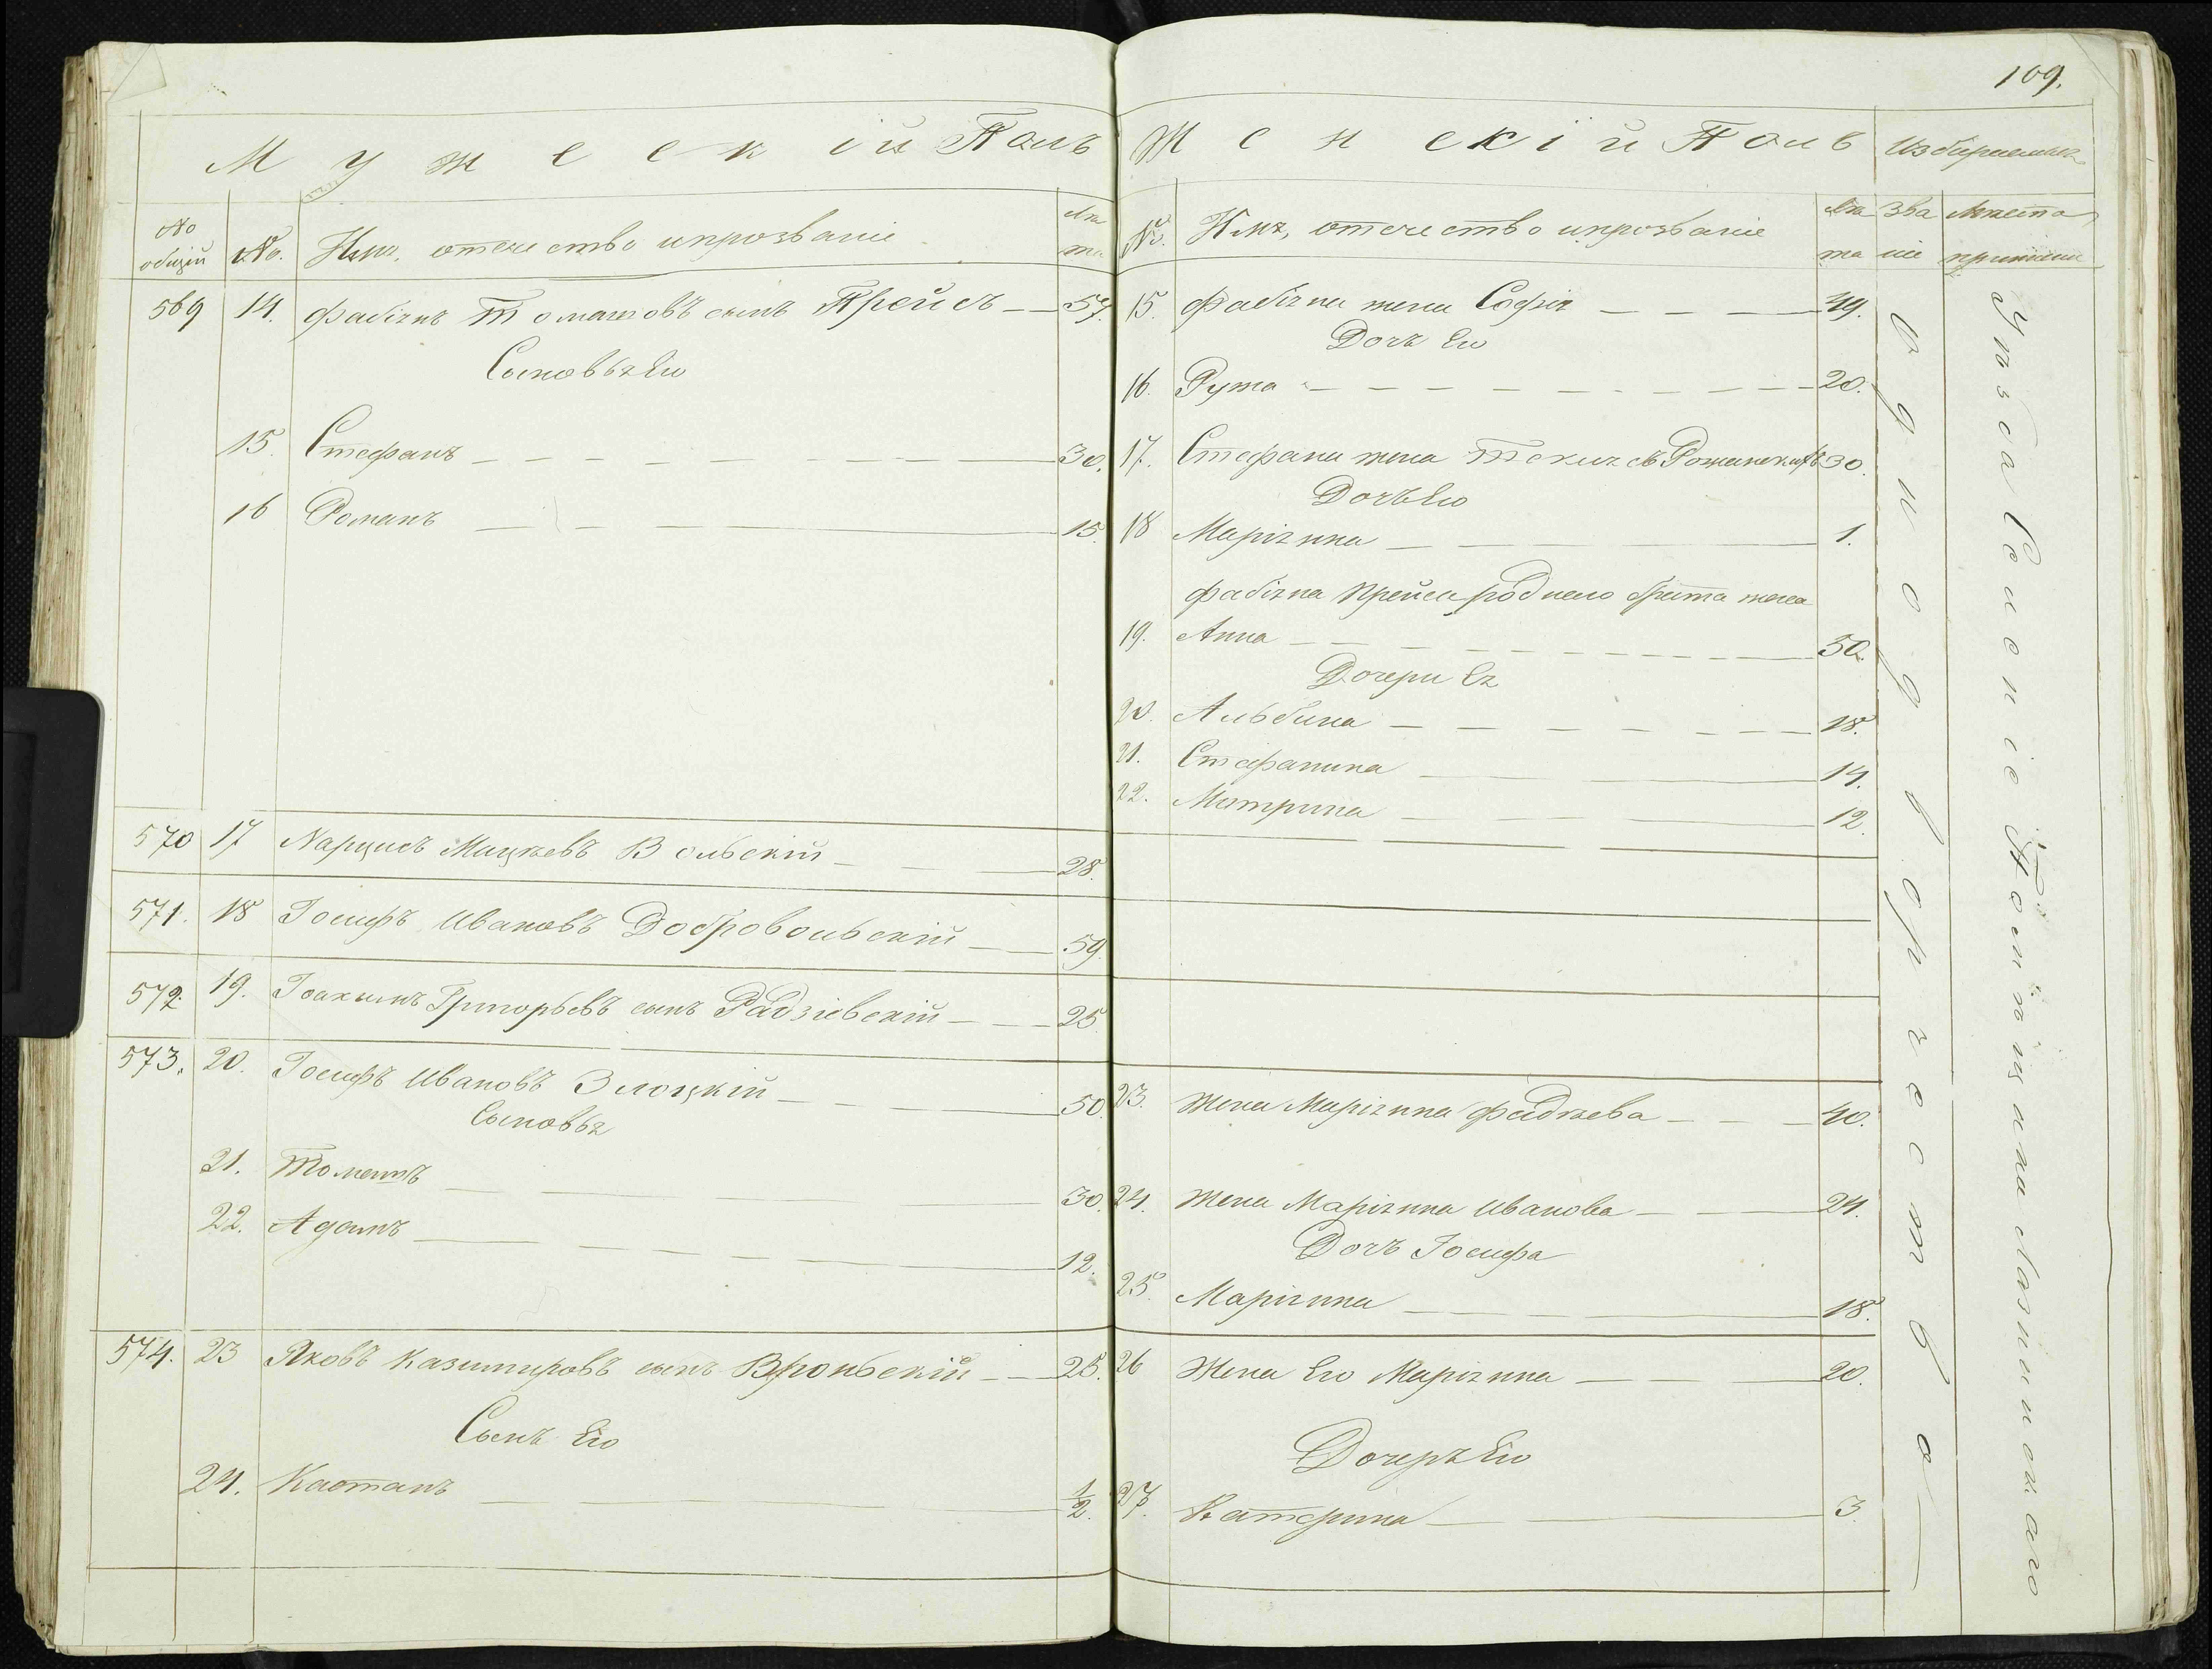 109.
Мужескій Полъ
№ общій №. Имя, отечество и прозваніе Лѣта
569 14. Фабіянъ Томашовъ сынъ Прейсъ — — 57.
Сыновья Его
15. Стефанъ — — — 30.
16 Романъ — — — 15.
570 17 Нарцисъ Мацѣевъ Вольскій — — — 28.
571. 18 Іосифъ Ивановъ Добровольскій — — 59.
572. 19. Іоахимъ Григорьевъ сынъ Радзіевскій — — — 25.
573. 20. Іосифъ Ивановъ Злоцкій — — — 50.
Сыновья
21. — — — 30.
22. Адамъ — — — 12.
574. 23 Яковъ Казимировъ сынъ — — 25.
Сынъ Его
24. Каэтанъ — — — 1/2.
Женскій Полъ Избираемыя
№. Имя, отечество и прозваніе Лѣта Званіе Мѣста
15. Фабіяна жена Софія — — — —
Дочь Его
16. Рута — — — 20.
17. Стефана жена Текля съ 30.
Дочь Его
18 Маріянна — — — 1.
Фабіяна Прейса роднаго брата жена
19. Анна — — — 50.
Дочери Ея
20. Альбина — — — 18.
21. Стефанина — — — 14.
22. Матрина — — — 12.
23. Жена Маріянна Фадѣева — — — 40.
24. Жена Маріянна Иванова — — — 24.
Дочь Іосифа
25. Маріянна — — — 18.
26 Жена Его Маріянна — — — 20.
Дочерь Его
27. Катерина — — 3.
Однодворчество —
Уѣзда Селеніе Помѣщика